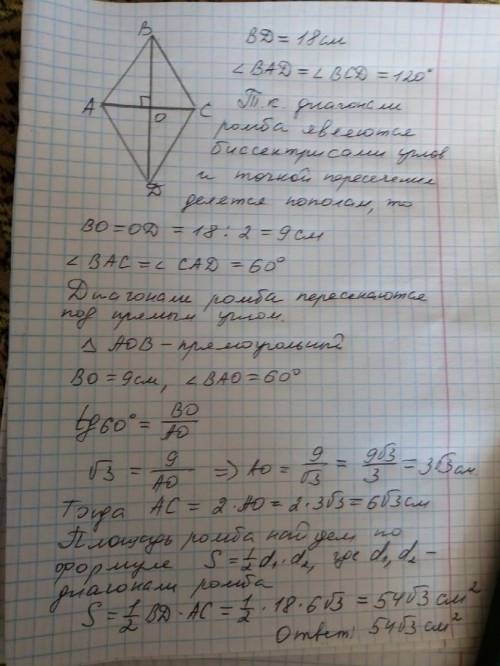 B
A
C
O
D
BD = 18см
∠BAD = ∠BCD = 120°
Т.к. диагонали
ромба являются
биссектрисами углов
и точкой пересечения
делятся пополам, то
BO = OD = 18 : 2 = 9см
∠BAC = ∠CAD = 60°
Диагонали ромба пересекаются
под прямым углом.
△ AOB – прямоугольный
BO = 9см, ∠BAO = 60°
tg 60° = BO/AO
√3 = 9/AO ⇒ AO = 9/√3 = 9√3/3 = 3√3 см
Тогда AC = 2·AO = 2·3√3 = 6√3 см
Площадь ромба найдем по
формуле S = 1/2 d₁·d₂, где d₁, d₂ –
диагонали ромба
S = 1/2 BD·AC = 1/2 · 18 · 6√3 = 54√3 см²
Ответ: 54√3 см²